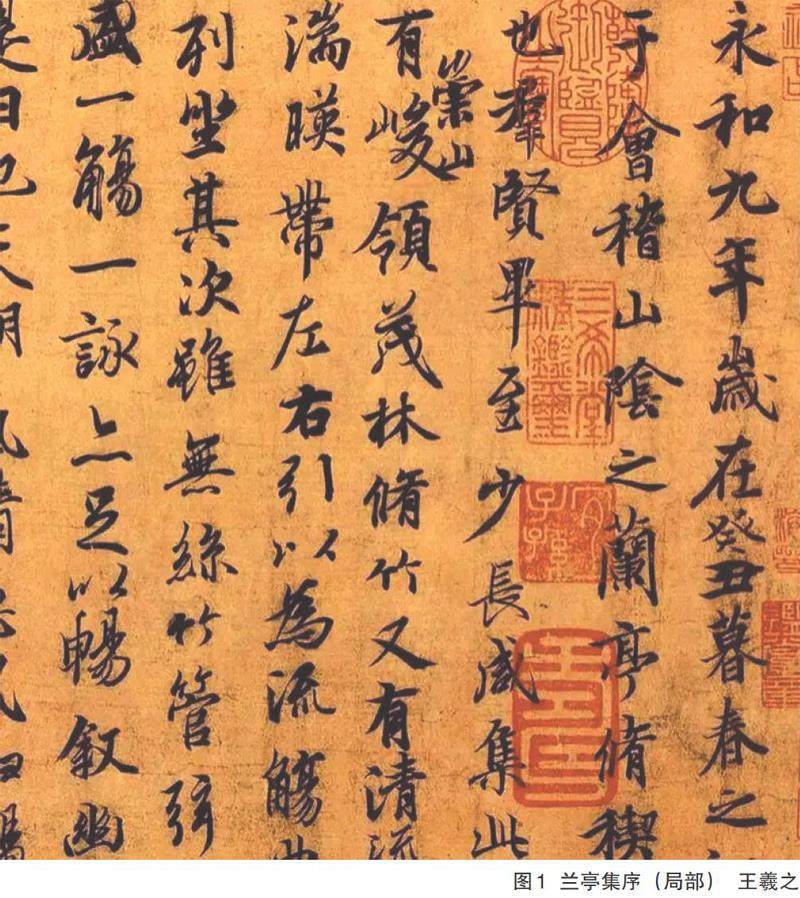 永和九年歲在癸丑暮春之
于會稽山陰之蘭亭脩稧
也羣賢畢至少長咸集此
有崇山峻領茂林脩竹又有清流
湍暎帶左右引以為流觴曲
列坐其次雖無絲竹管弦
盛一觴一詠亦足以暢叙幽
三希堂精鑑璽
宜子孫
图1 兰亭集序（局部） 王羲之